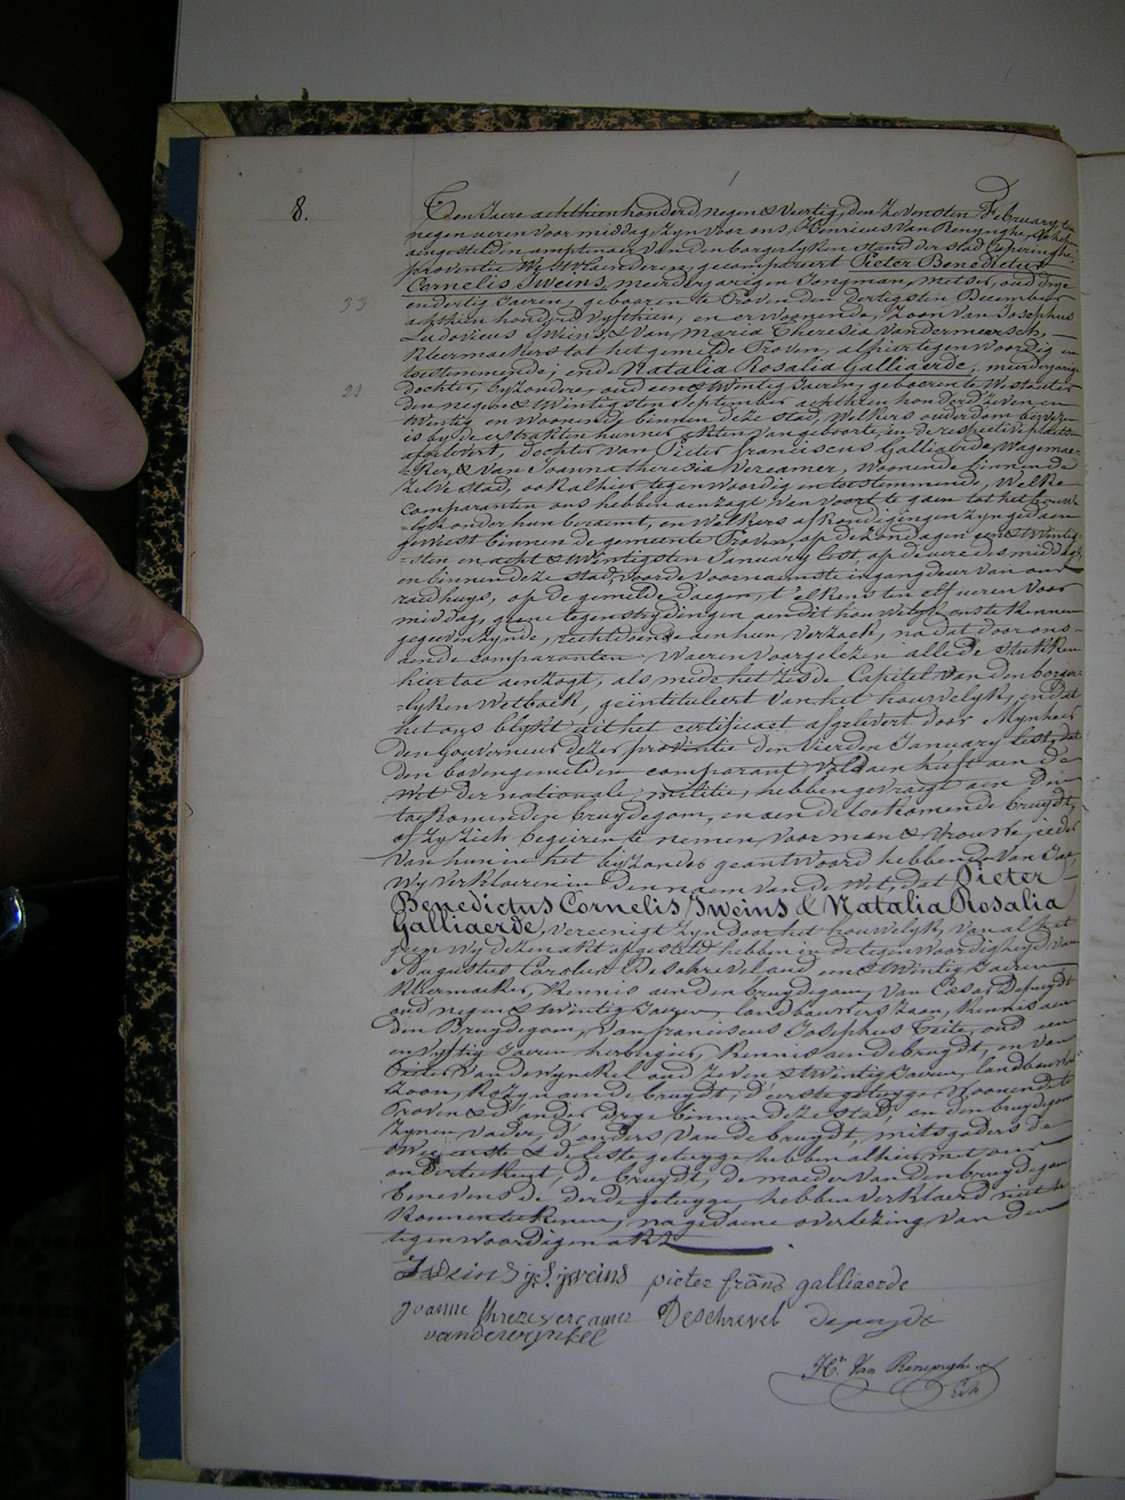 8.
Den Jaere achthien honderd negen & veertig, den Zevensten February, ten
negen ueren voor middag, zyn voor ons, Henricus Van Renynghe, Schepen
aengestelden amptenaer van den borgerlyken stand der stad Poperinghe,
provintie West Vlaenderen, gecompareert Pieter Benedictus
Cornelis Sweins, meerderjarigen Jongman, metser, oud drye
33
endertig Jaeren, gebooren te Proven den dertigsten December
achthien honderd Vyfthien, en er woonende, Zoon van Josephus
Ludovicus Sweins, & van Maria Theresia Vandermeersch,
Kleermaekers tot het gemelde Proven, alhier tegenwoordig en
toestemmende; ende Natalia Rosalia Galliaerde, meerderjarige
21
dochter, byzondere, oud een & twintig Jaeren, geboren te Westouter
den negen & twintigsten September achthien honderd zeven en
twintig en woonende binnen deze stad, Welkers ouderdom bewezen
is by de extrakten hunner akten van geboorte, in de respective plaetsen
afgelevert, dochter van Pieter franciscus Galliaerde, Wagemae-
-ker, & van Joanna theresia Vercamer, woonende binnen de
zelve stad, ook alhier tegenwoordig en toestemmende, Welke
comparanten ons hebben aenzogt van voort te gaen tot het houwe-
-lyk onder hun beraemt, en welkers afkondigingen zyn gedaen
geweest binnen de gemeente Proven, op de zondagen een & twintig-
-sten en acht & twintigsten January lest, op de uere des middags
en binnen deze stad, voor de voornaemste ingangdeur van ons
raedhuys, op de gemelde daegen, t'elkens ten elf ueren voor
middag, geene tegenstrydingen aen dit houwelyk ons te kennen
gegeven zynde, rechtdoende aen hun verzoek, na dat door ons
aen de comparanten waeren voorgelezen alle de stukken
hier toe aenzogt, als mede het zesde Capitel van den borger-
-lyken Wetboek, geïntituleert van het houwelyk, en dat
het ons blykt uit het certificaet afgelevert door Mynheer
den Gouverneur dezer provintie den vierden January lest, dat
den bovengemelden comparant voldaen heeft aen de
Wet der nationale militie, hebben gevraegt aen den
toekomenden bruydegom, en aen de toekomende bruydt,
of zy zich begeiren te nemen voor man & Vrouwe, ieder
van hun in het byzonder geantwoord hebbende van Jae,
Wy verklaeren in den naem van de Wet, dat Pieter
Benedictus Cornelis Sweins & Natalia Rosalia
Galliaerde, vereenigt zyn door het houwelyk, van al het
geen wy dezen akt opgesteld hebben in de tegenwoordigheyd van
Augustus Carolus Deschrevel oud een & twintig Jaeren
Kleermaeker, kennis aen den bruydegom, van Cesar Depuydt
oud negen & twintig Jaeren, landbouwers Zoon, kennis aen
den Bruydegom, van franciscus Josephus Feite, oud een
en vyftig Jaeren herbergier, kennis aen de bruydt, en van
Pieter Vandewynckel oud zeven & twintig Jaeren, landbouwers
Zoon, kozyn aen de bruydt, d'eerste getuyge woonende te
Proven & d'ander drye binnen deze stad, en den bruydegom
zynen vader, d'ouders van de bruydt, mitsgaders de
twee eerste & de leste getuyge hebben alhier met ons
onderteekent, de bruydt, de moeder van den bruydegom
benevens de derde getuyge hebben verklaerd niet te
konnen teekenen, na gedaene overlezing van den
tegenwoordigen akt.
Sweins j: l: sweins pieter frans galliaerde
joanne threze vercamer Deschrevel depuydt
vandewynkel
Hri Van Renynghe
Sch